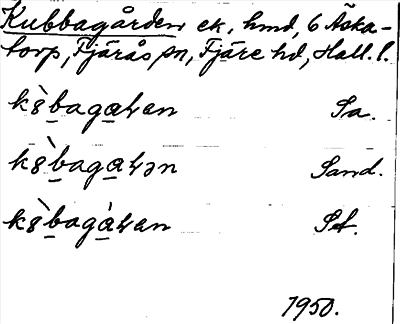 Kubbagården ek. hmd, 6 Äska-
torp, Fjärås sn, Fjäre hd, Hall. l.
k8̀bagaɥan Sa.
k8̀bagaɥən Sand.
k8̀bagàɥan Set.
1950.